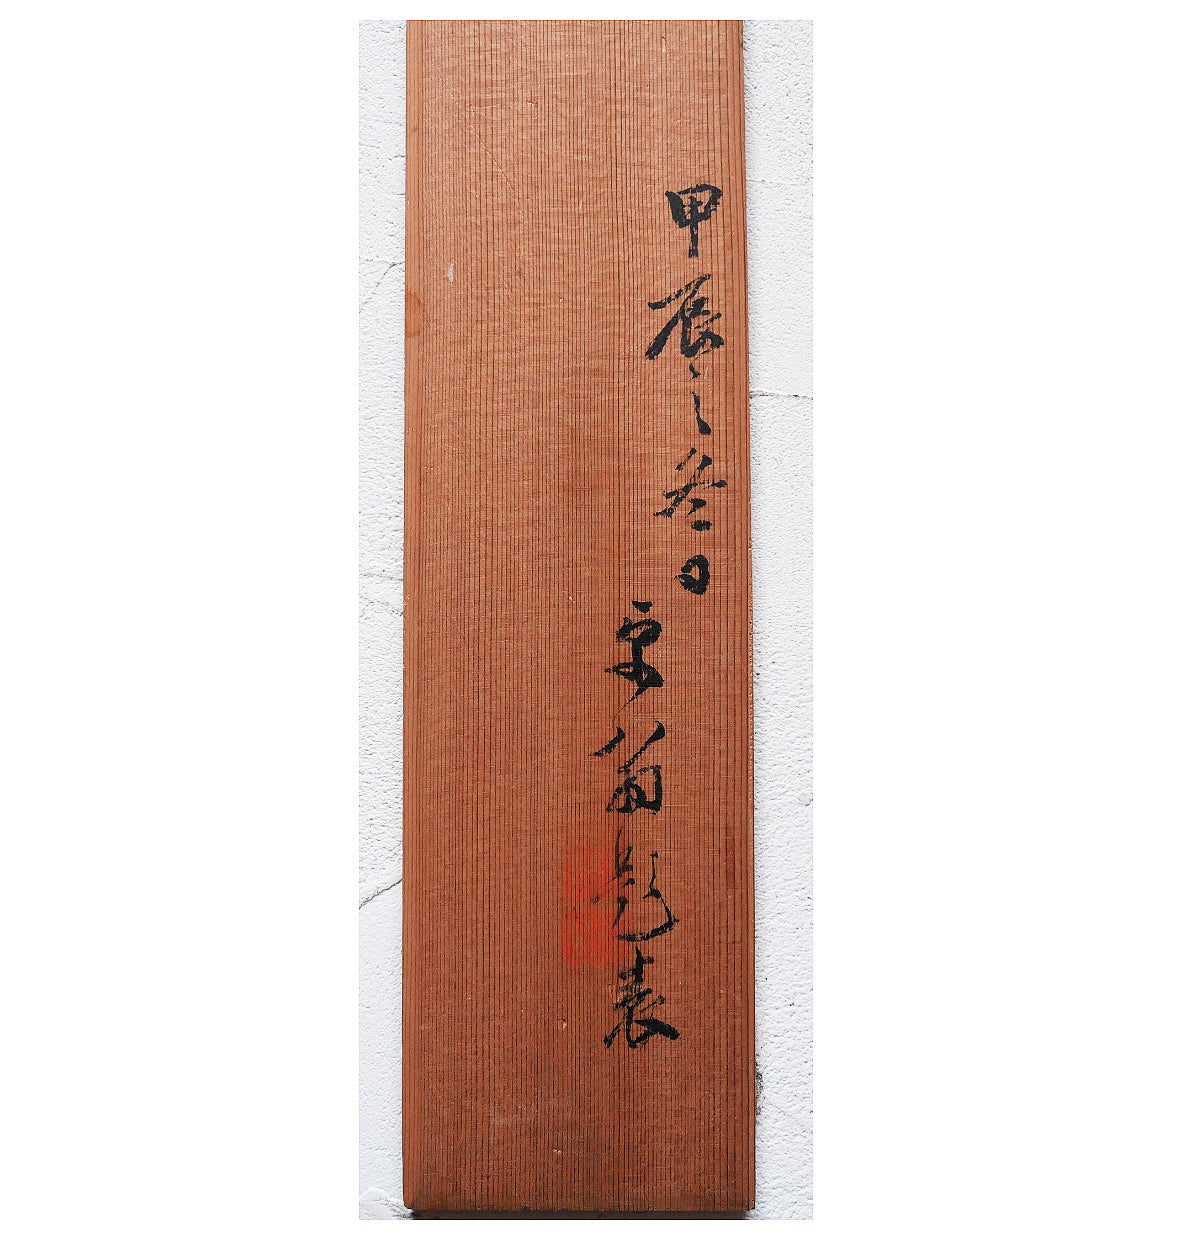 甲辰之冬日
宗翁題表